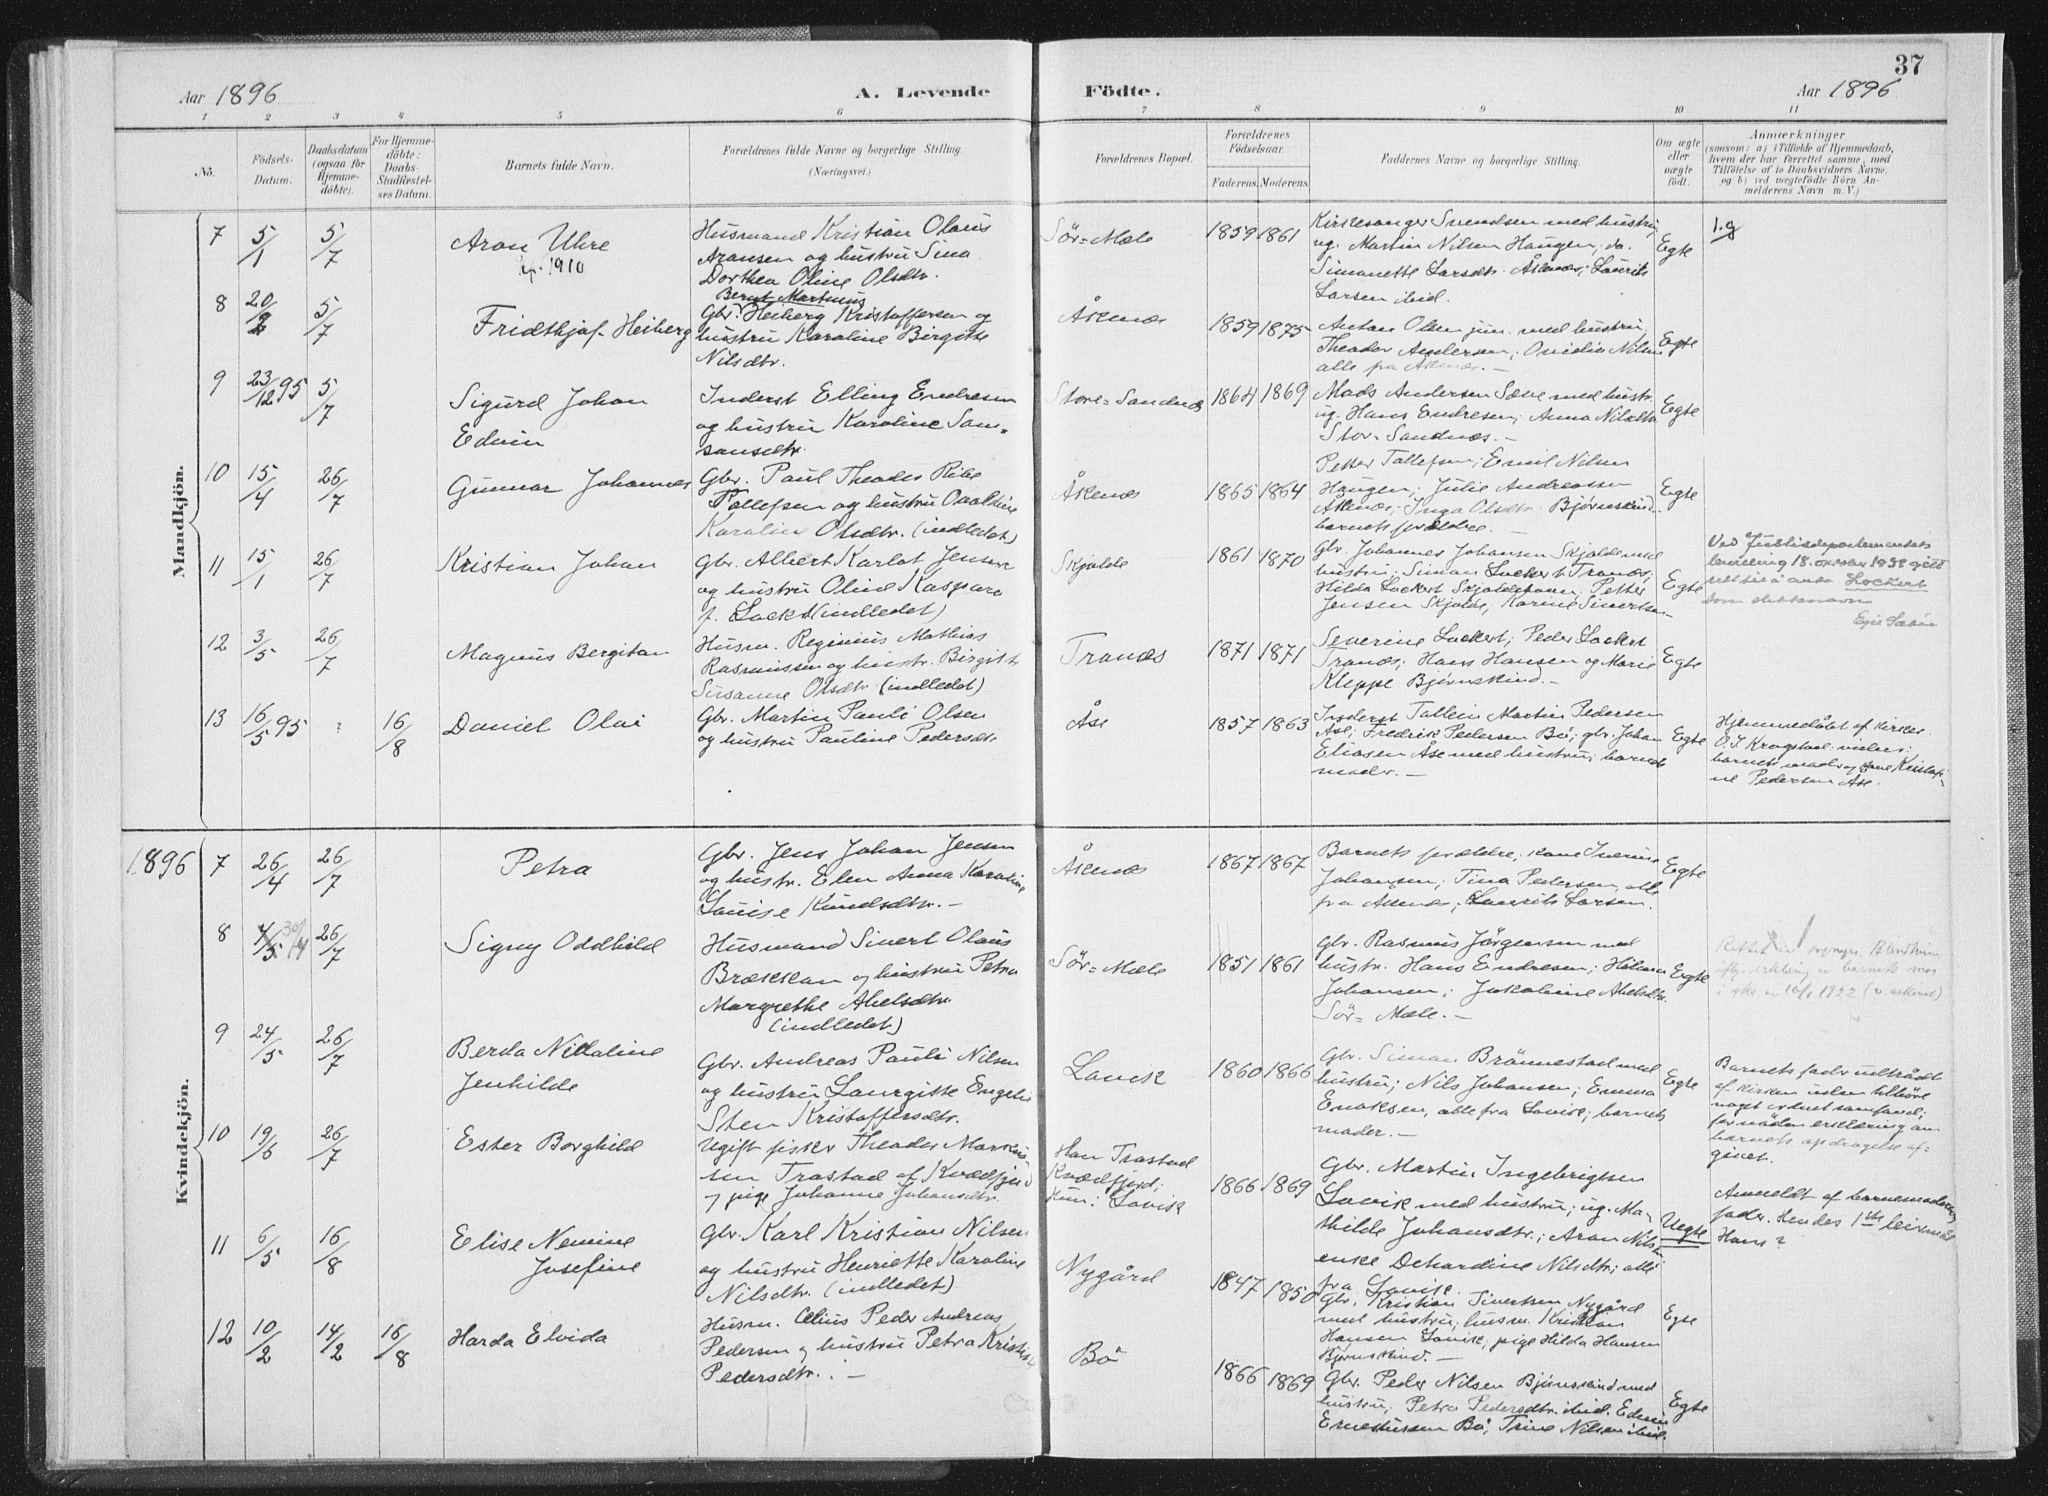 37
Aar 1896
A. Levende
Födte.
Aar 1896
1 2 3 4 5 6 7 8 9 10 11
No.
Födsels-
Datum.
Daabsdatum
(ogsaa for
Hjemme-
döbte).
For Hjemme-
döbte:
Daabs-
Stadfæstel-
ses Datum.
Barnets fulde Navn.
Forældrenes fulde Navne og borgerlige Stilling.
(Næringsvei.)
Forældrenes Bopæl.
Forældrenes
Födselsaar.
Faderens. Moderens.
Faddernes Navne og borgerlige Stilling.
Om ægte
eller
uægte
födt.
Anmærkninger
(saasom: a) i Tilfælde af Hjemmedaab,
hvem der har forrettet samme, med
Tilföielse af to Daabsvidners Navne,
og b) ved uægtefödte Börn An-
melderens Navn m. V.)
Mandkjön.
7 5/1 5/7
Aron Uhre
1910
Husmand Kristian Olaus
Aronsen og hustru Sina
Dorthea Oline Olsdtr.
Sör-Mæle
1859 1861
Kirkesanger Svendsen med hustru;
ug. Martin Nilsen Haugen; do.
Simonette Larsdtr. Åkenæs; Laurits
Larsen ibid.
Egte
8 20/2 5/7
Fridthjof Heiberg
Bernt Martinius
Gbr. Heiberg Kristoffersen og
hustru Karoline Birgitte
Nilsdtr.
Åkenæs
1859 1875
Anton Olsen jun. med hustru;
Theodor Andersen; Ovidia Nilsen
alle fra Åkenæs.-
Egte
9 23/12 95 5/7
Sigurd Johan
Edvin
Inderst Elling Endresen
og hustru Karoline San-
Store-Sandnes
1864 1869
Mads Andersen Sæve med hustr.
ug. Hans Endresen; Anna Nilsdtr.
Stor-Sandnæs.-
Egte
10 15/4 26/7
Gunnar Johannes
Gbr. Paul Theodor Ribe
Tollefsen og hustru Ovaldine
Karoline Olsdtr. (indledet)
Åkenes
1865 1864
Petter Tollefsen; Emil Nilsen
Haugen; Julie Andreassen
Åkenæs; Inga Olsdtr. Bjørnskind
barnets forældre.-
Egte
11 15/1 26/7
Kristian Johan
Gbr. Albert Karlot Jensen
og hustru Olind Kaspara
f. Lockert (indledet)
Skjolde
1861 1870
Gbr. Johannes Johansen Skjolde med
hustru; Simon Lockert Tranæs;
Hilda Lockert Skjoldehavn; Petter
Jensen Skjolde; Karine Sivertsen
Egte
Ved Justisdepartementets
18. oktober 1938 gitt
rett til å anta Lockert
som slektsnavn
12 3/5 26/7
Magnus Bergiton
Husm. Reginius Mathias
Rasmussen og hustr. Birgitte
Susanne Olsdtr. (indledet)
Tranæs
1871 1871
Severine Lockert; Peder Lockert
Tranæs; Hans Hansen og Marie
Kleppe Bjørnskind.-
Egte
13 16/5 95 16/8
Daniel Olai
Gbr. Martin Pauli Olsen
og hustru Pauline Pedersdtr.
Åse
1857 1863
Inderst Tollein Martin Pedersen
Åse; Fredrik Pedersen Bö; gbr. Johan
Eliasen Åse med hustru; barnets
moder.-
Egte
Hjemmedöbt af kirkes.
O. J. Krogstad: vidner:
barnets moder og kone Kristof-
ne Pedersen Åse.
Kvindekjön.
1896 7 26/4 26/7
Petra
Gbr. Jens Johan Jensen
og hustr. Elen Anna Karoline
Louise Knudsdtr.-
Åkenæs
1867 1867
Barnets forældre; kone Iverine
Johansen; Tina Pedersen, alle
fra Åkenæs; Laurits Larsen.
Egte
8 30/4 26/7
Signy Oddhild
Husmand Sivert Olaus
Brækkan og hustru Petra
Margrethe Abelsdtr.
(indledet)
Sör-Mæle
1851 1861
Gbr. Rasmus Jörgensen med
hustr. Hans Endresen; Hilmar
Johansen; Jakobine Abelsdtr.
Sör-Mæle.-
Egte
9 24/5 26/7
Berda Nicoline
Jenhilde
Gbr. Andreas Pauli Nilsen
og hustru Laurgitte Engel
Sten Kristoffersdtr.
Lovik
1860 1866
Gbr. Simon Brönnestad med
hustru; Nils Johansen; Emma
Enoksen, alle fra Lovik; barnets
moder.-
Egte
Barnets fader udtrådt
af kirken uden tilhöre
noget ordnet samfund;
fornöden erklæring om
barnets opdragelse af-
givet.
10 19/6 26/7
Ester Borghild
Ugift fisker Theodor Marku
sen Trastad af Kvædfjord
og pige Johanne Johansdtr.
Han Trastad
Kvædfjord;
Hun: Lovik
1866 1869
Gbr. Martin Ingebrigtsen
Lovik med hustru; ug. Ma-
thilde Johansdtr.; Aron Nilsen
enke Dehardine Nilsdtr; alle
fra Lovik.
Uegte
Anmeldt af barnemoderens
fader. Hendes 1ste leiermaal
Hans?
11 6/5 16/8
Elise Nemine
Josefine
Gbr. Karl Kristian Nilsen
og hustru Henriette Karoline
Nilsdtr. (indledet)
Nygård
1847 1850
Gbr. Kristian Sivertsen Nygård
med hustru; husm. Kristian
Hansen Lovik; pige Hilda Hansen
Bjørnskind.-
Egte
12 10/2 14/2 16/8
Harda Elvida
Husm. Celius Peder Andreas
Pedersen og hustru Petra Kristine
Pedersdtr.-
Bö
1866 1869
Gbr. Peder Nilsen Bjørnskind med
hustru; Petra Pedersdtr. ibid. Edvin
Ernestussen Bö; Trine Nilsen ibid.
Egte